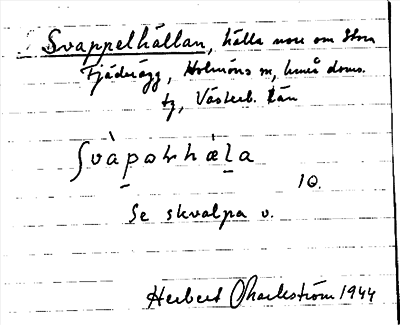 Svappelhällan, hälla norr om Stora
Fjäderägg, Holmöns sn, Umeå doms.
tg, Västerb. län
ʃvàpəɫhàl̠a
10.
Se skvalpa v.
Herbert Markström 1944